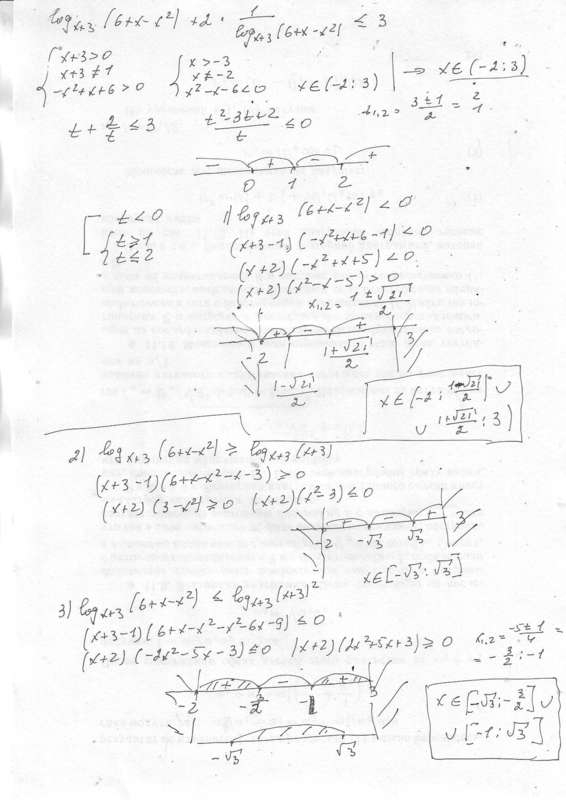 log_{x+3} (6+x-x²) + 2 · 1/log_{x+3}(6+x-x²) ≤ 3
{ x+3>0 { x>-3
{ x+3≠1 { x≠-2 x∈(-2;3) | → x∈(-2;3)
{ -x²+x+6>0 { x²-x-6<0
t + 2/t ≤ 3 (t²-3t+2)/t ≤ 0 t₁,₂ = (3±1)/2 = 2 1
- + - +
0 1 2
[ t<0 1) log_{x+3} (6+x-x²) < 0
[ { t≥1 (x+3-1)(-x²+x+6-1)<0
{ t≤2 (x+2)(-x²+x+5)<0
(x+2)(x²-x-5)>0
x₁,₂ = (1±√21)/2
+ - +
-2 (1-√21)/2 (1+√21)/2 3
x∈(-2; (1-√21)/2) ∪
∪ (1+√21)/2; 3)
2) log_{x+3} (6+x-x²) ≥ log_{x+3} (x+3)
(x+3-1)(6+x-x²-x-3)≥0
(x+2)(3-x²)≥0 (x+2)(x²-3)≤0
+ - +
-2 -√3 √3 3
x∈[-√3;√3]
3) log_{x+3} (6+x-x²) ≤ log_{x+3} (x+3)²
(x+3-1)(6+x-x²-x²-6x-9)≤0
(x+2)(-2x²-5x-3)≤0 (x+2)(2x²+5x+3)≥0 x₁,₂ = (-5±1)/4 =
= -3/2; -1
+ - +
-2 -3/2 -1 3
-√3 √3
x∈[-√3; -3/2] ∪
∪ [-1; √3]